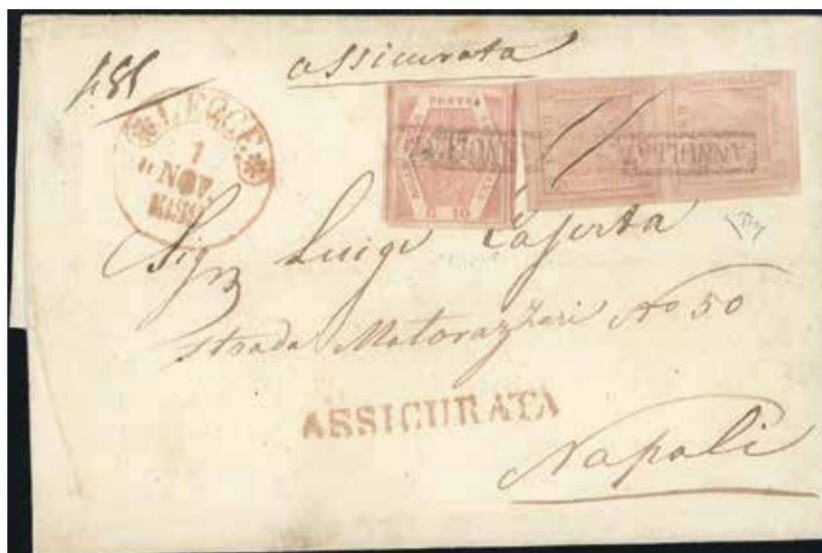 assicurata
LECCE
1
NOV.
POSTA
G 10
ANNULLATO
ANNULLATO
Sig.r Luigi Laferta
Strada Matarazzari No 50
ASSICURATA
Napoli